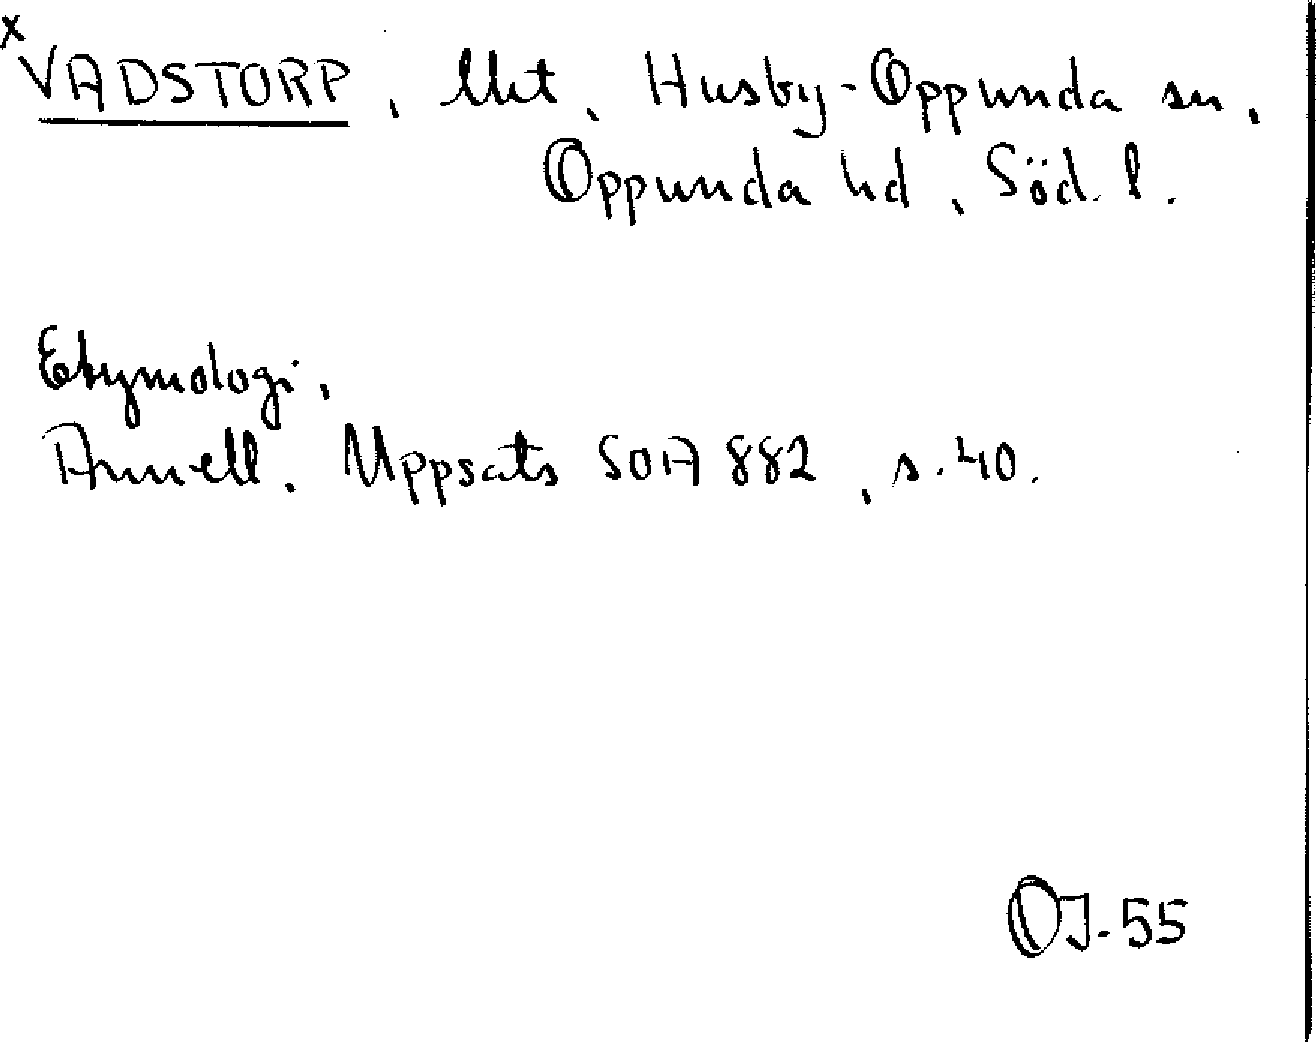 x
VADSTORP, lht, Husby-Oppunda sn,
Oppunda hd, Söd. l.
Etymologi,
Annell. Uppsats SOA 882, s. 40.
OJ-55